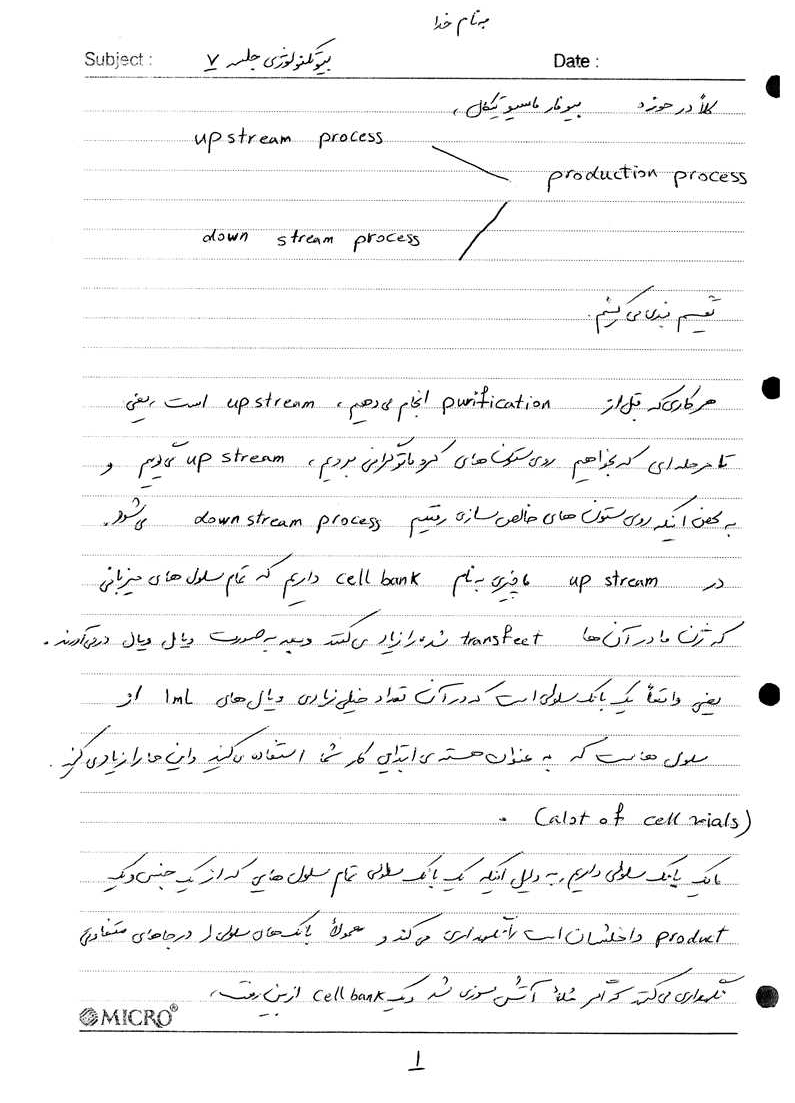 به نام خدا
Subject : بیوتکنولوژی جلسه ۷ Date :
کلاً در حوزه بیوفارماسیوتیکال،
upstream process
production process
down stream process
تقسیم بندی می کنیم.
هر کاری که قبل از purification انجام می دهیم، upstream است، یعنی
تا مرحله ای که بخواهیم روی ستون های کروماتوگرافی برویم، up stream می گوییم و
به محض اینکه روی ستون های خالص سازی رفتیم down stream process می شود.
در up stream ما چیزی به نام cell bank داریم که تمام سلول های میزبانی
که ژن ما در آن ها transfect شده را زیاد می کنند و بعد به صورت ویال ویال در می آورند.
یعنی واقعاً یک بانک سلولی است که در آن تعداد خیلی زیادی ویال های 1mL از
سلول هاست که به عنوان هسته ی ابتدای کار شما استفاده می کنید و این ها را زیاد می کنید.
(alot of cell vials) .
ما یک بانک سلولی داریم، به دلیل اینکه یک بانک سلولی تمام سلول هایی که از یک جنس و یک
product داخلشان است را نگهداری می کند و معمولاً بانک های سلولی را در جاهای متفاوتی
نگهداری می کنند که اگر مثلاً آتش سوزی شد و یک cell bank از بین رفت،
MICRO®
1